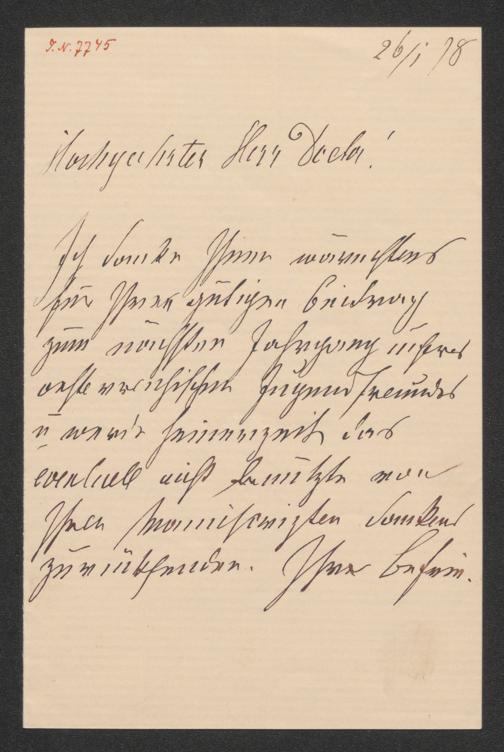 I. N. 7745
26/1 78
Hochgeehrter Herr Doctor!
Ich danke Ihnen wärmstens
für Ihren gütigen Beitrag
zum nächsten Jahrgang unseres
oesterreichischen Jugendfreundes
u werde seinerzeit das
eventuell nicht benützte von
Ihren Manuscripten dankend
zurücksenden. Ihre